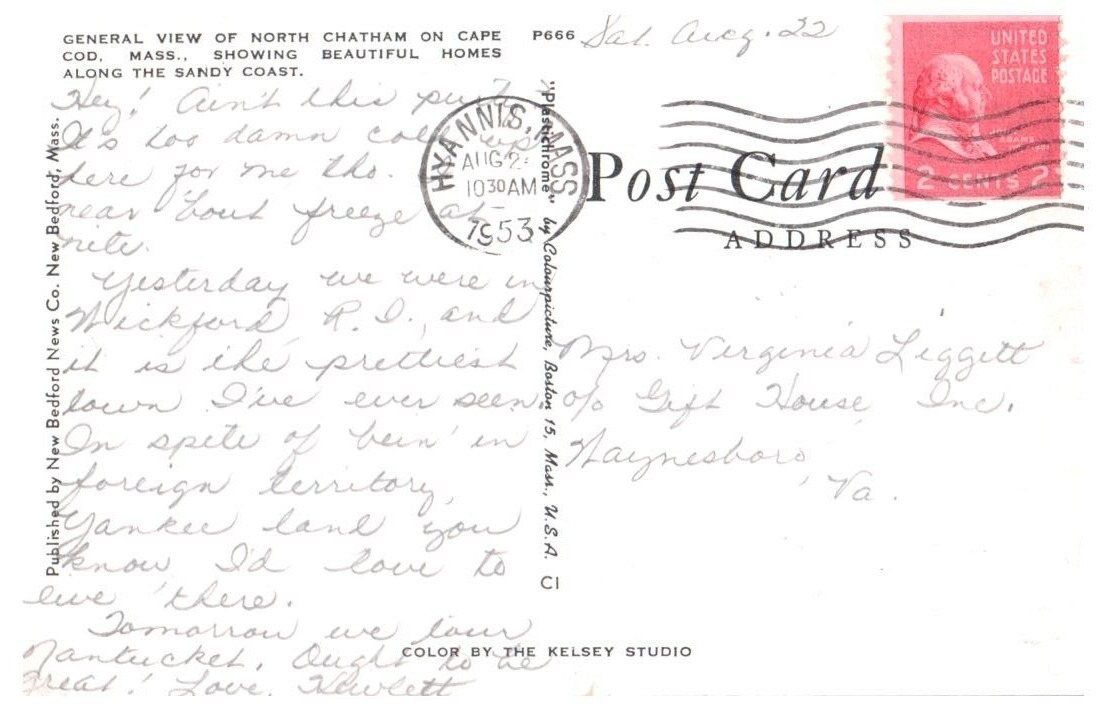 GENERAL VIEW OF NORTH CHATHAM ON CAPE
COD, MASS., SHOWING BEAUTIFUL HOMES
ALONG THE SANDY COAST.
P666
Sat. Aug. 22
Hey! Ain't this purty
It's too damn cold up
here for me tho.
near 'bout freeze at
nite.
Yesterday we were in
Wickford, R.I., and
it is the prettiest
town I've ever seen.
In spite of bein' in
foreign territory,
Yankee land you
know I'd love to
live there.
Tomorrow we tour
Nantucket. Ought to be
great! Love, Hewlett
Published by New Bedford News Co. New Bedford, Mass.
"Plastichrome" by Colourpicture, Boston 15, Mass., U.S.A.
C1
HYANNIS, MASS
AUG 2
10 30 AM
1953
UNITED
STATES
POSTAGE
JOHN
ADAMS
2 CENTS 2
Post Card
ADDRESS
Mrs. Virginia Liggett
c/o Gift House, Inc.
Waynesboro,
Va.
COLOR BY THE KELSEY STUDIO